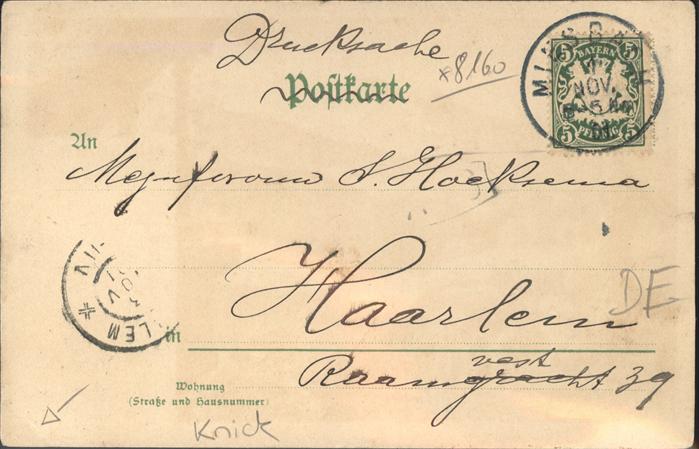 Drucksache
*8160
Postkarte
MIESBACH
17 NOV.
5 BAYERN 5
5 PFENNIG 5
An
Mejufvrouw S. Hoeksema
Haarlem
LEM
NOV
DE
in
vest
Raamgracht 39
Wohnung
(Straße und Hausnummer)
Knick